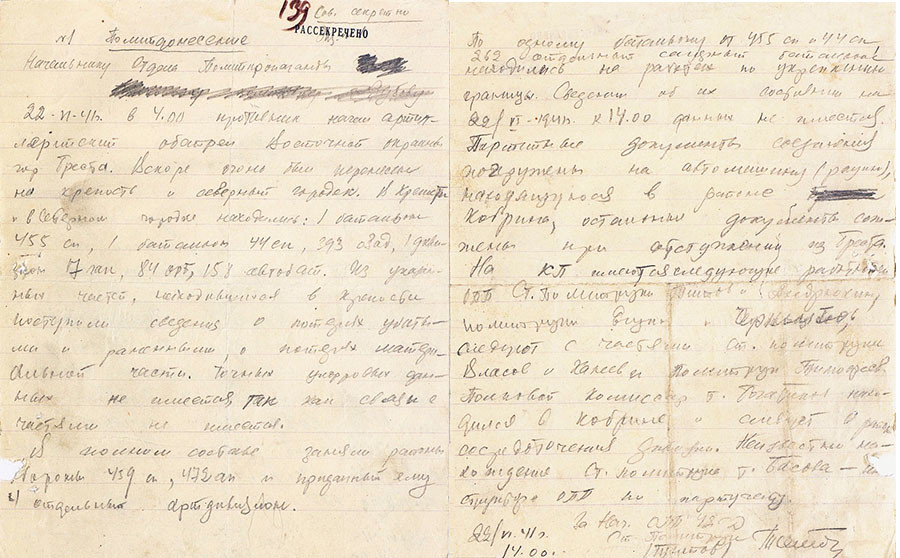 139 Сов. секретно
РАССЕКРЕЧЕНО
№1 Политдонесение
Начальнику Отдела Политпропаганды
22-VI-41г. в 4.00 противник начал артил-
лерийский обстрел Восточной окраины
гор. Бреста. Вскоре огонь был перенесен
на крепость и северный городок. В крепости
и в Северном городке находились: 1 батальон
455 сп, 1 батальон 44 сп, 393 озад, 1 диви-
зион 17 гап, 84 орб, 158 автобат. Из указан-
ных частей, находившихся в крепости
поступили сведения о потерях убиты-
ми и ранеными, о потерях матери-
альной части. Точных цифровых дан-
ных не имеется, так как связи с
частями не имеется.
В полном составе заняли районы
обороны 459 сп, 472 ап и приданный ему
4 отдельный артдивизион.
По одному батальону от 455 сп и 44 сп
262 отдельный саперный батальон
находились на работах по укреплению
границы. Сведений об их состоянии на
22/VI-41г. к 14.00 данных не имеется.
Партийные документы соединения
погружены на автомашину
находящуюся в районе
Кобрина, остальные документы сож-
жены при отступлении из Бреста.
На КП имеются следующие работники
ОПП Ст. Политруки Титов и
политруки и
следуют с частями Ст. политруки
Власов и Ханеев и Политрук Тимофеев
Полковой Комиссар т. нахо-
дился в Кобрине и следует в район
сосредоточения дивизии. Неизвестно на-
хождение Ст. политрука т. Басова — ин-
структора ОПП по партучету.
22/VI-41г. За Нач. ОПП 42 сд
14.00. Ст. Политрук
(Титов)